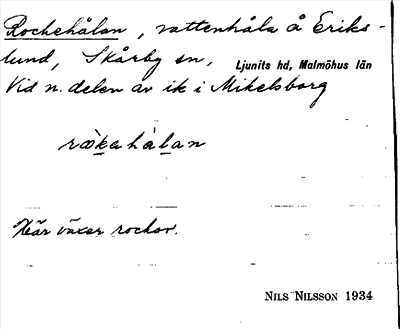 Rochehålan, vattenhåla å Eriks-
lund, Skårby sn, Ljunits hd, Malmöhus län
Vid n. delen av ik i Mikelsborg
rö̀kahålan
Här växer rochor.
NILS NILSSON 1934